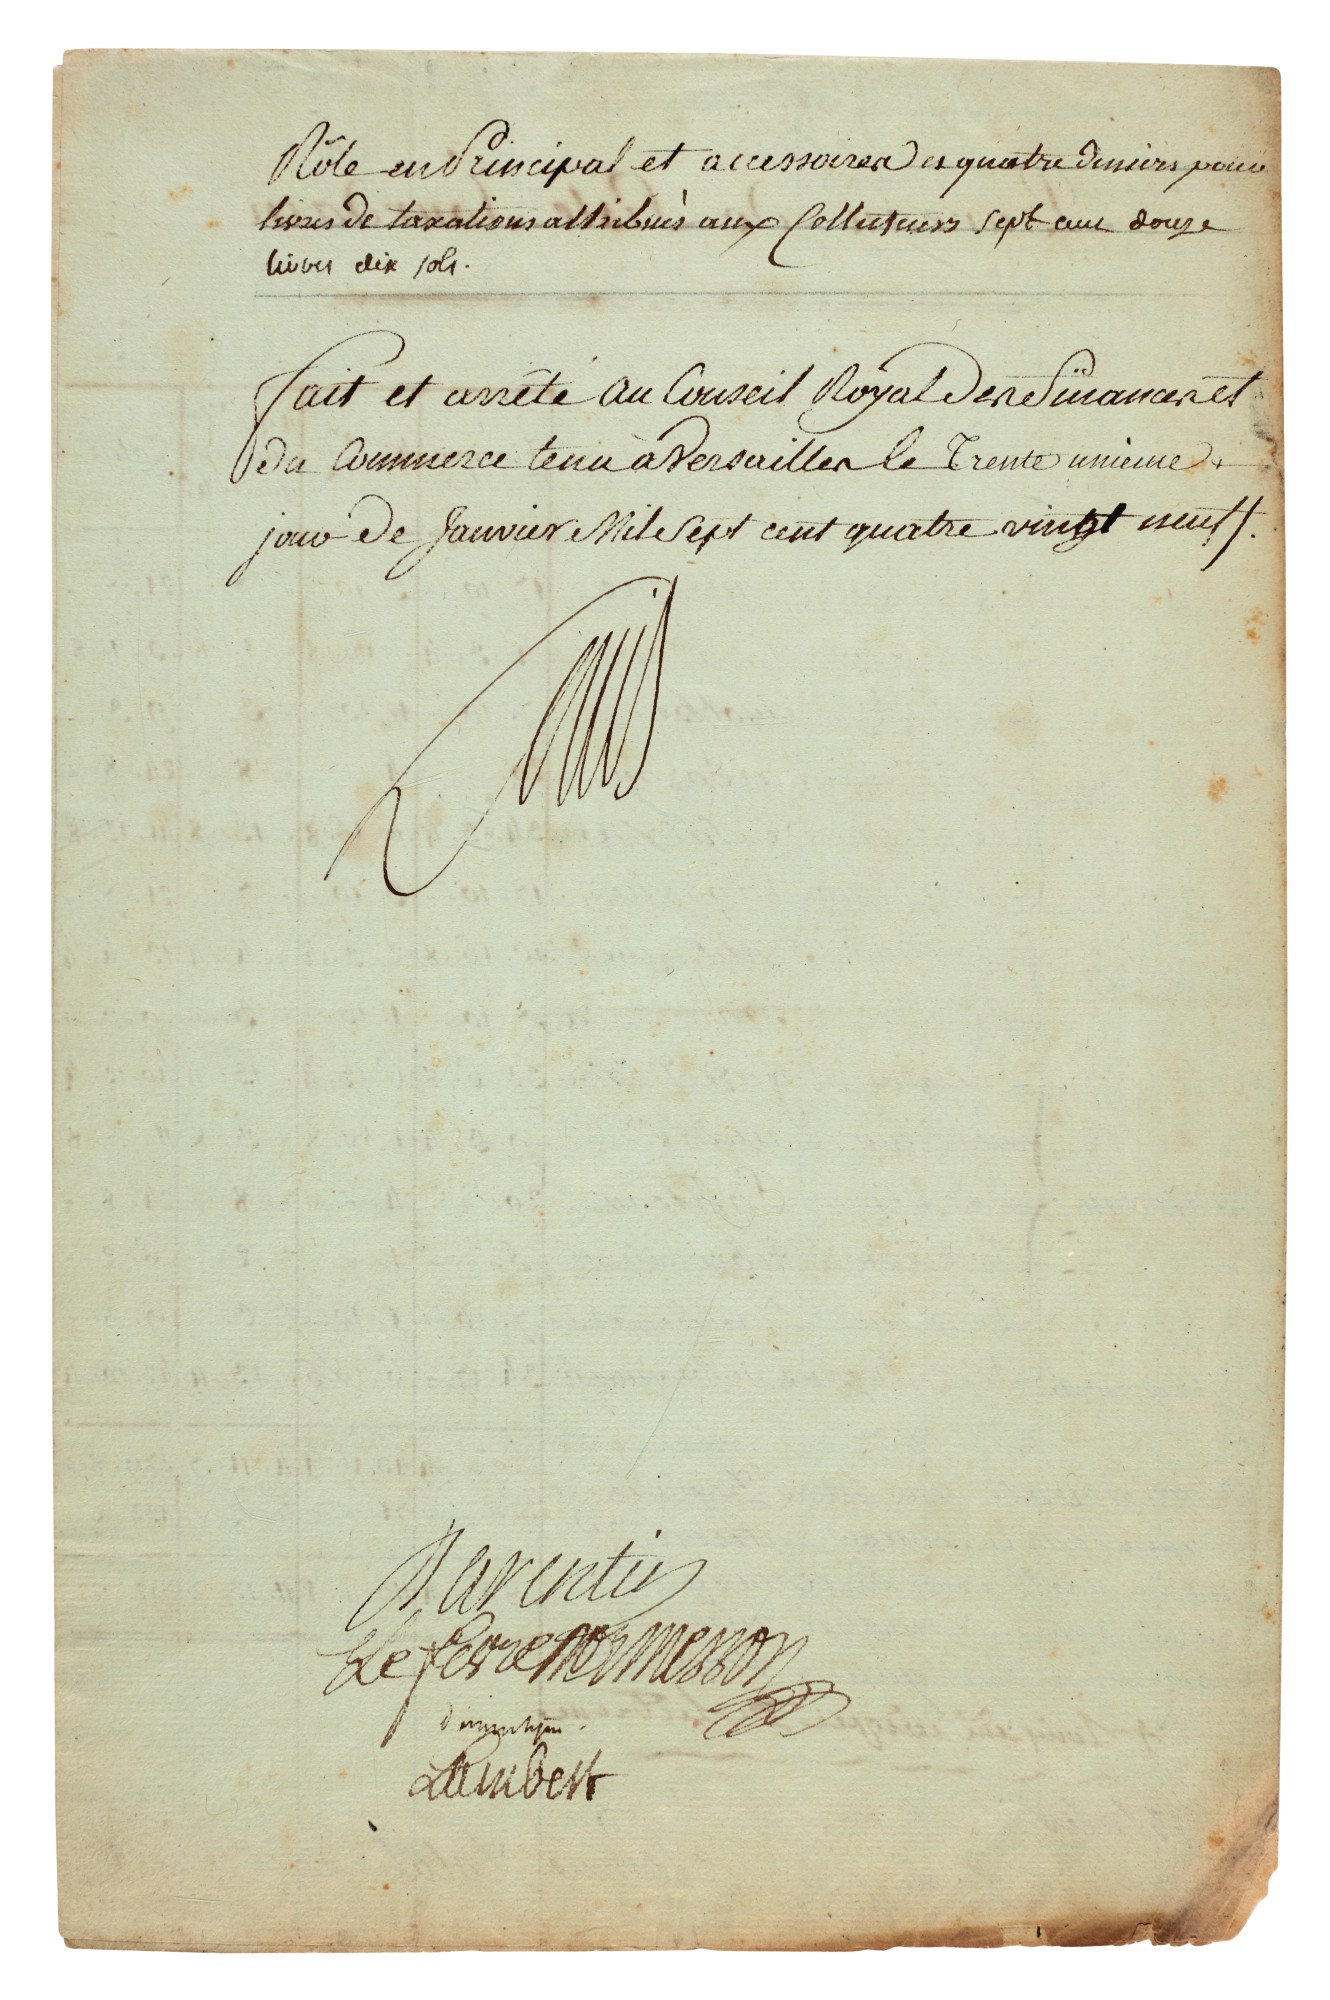 Rôle en Principal et accessoires des quatre deniers pour
livres de taxations attribués aux Collecteurs sept cent douze
livres dix sols.
Fait et arrêté au Conseil Royal des Finances et
du Commerce tenu à Versailles le Trente unieme
jour de Janvier Mil Sept cent quatre vingt neuf.
Louis
Barentin
Lefevre Dormesson
Lambert